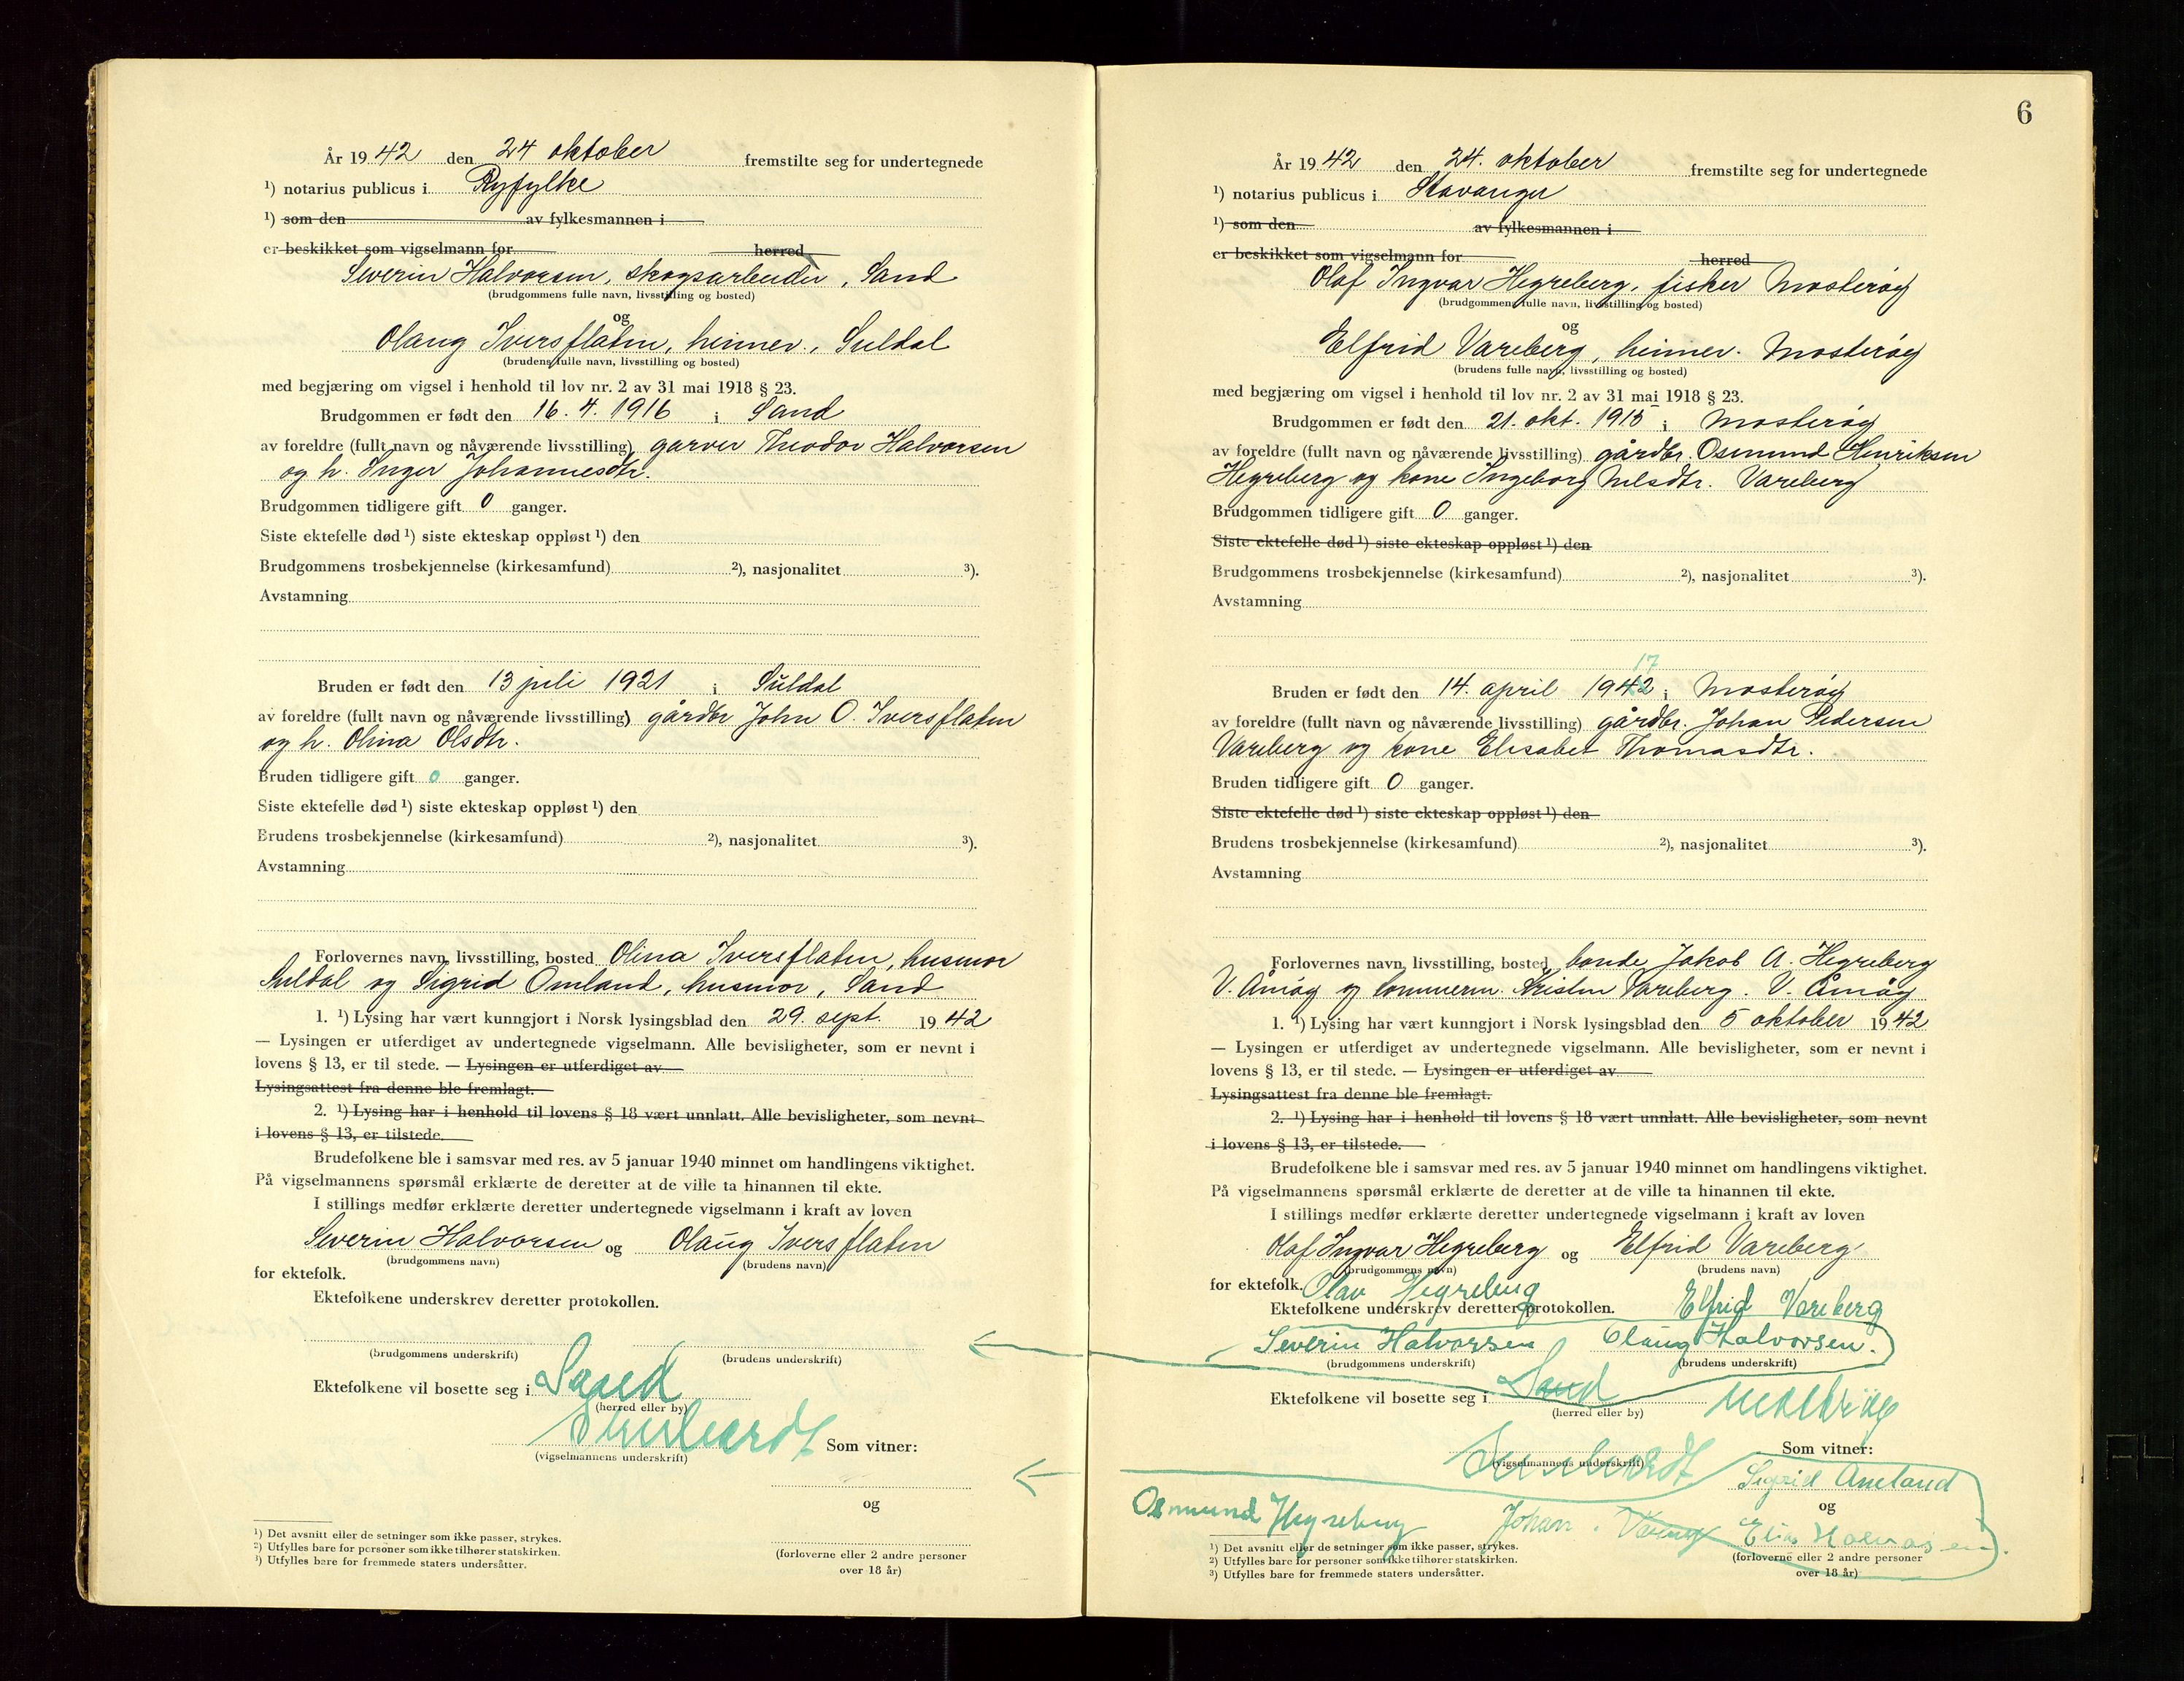 År 1942 den 24 oktober fremstilte seg for undertegnede
¹) notarius publicus i Ryfylke
¹) som den av fylkesmannen i
er beskikket som vigselmann for herred
Severin Halvorsen, skogsarbeider, Sand
(brudgommens fulle navn, livsstilling og bosted)
og
Olaug Iversflaten, heimev., Suldal
(brudens fulle navn, livsstilling og bosted)
med begjæring om vigsel i henhold til lov nr. 2 av 31 mai 1918 § 23.
Brudgommen er født den 16. 4. 1916 i Sand
av foreldre (fullt navn og nåværende livsstilling) garver Theodor Halvorsen
og h. Inger Johannesdtr.
Brudgommen tidligere gift 0 ganger.
Siste ektefelle død ¹) siste ekteskap oppløst ¹) den
Brudgommens trosbekjennelse (kirkesamfund) ²), nasjonalitet ³).
Avstamning
Bruden er født den 13 juli 1921 i Suldal
av foreldre (fullt navn og nåværende livsstilling) gårdbr John O. Iversflaten
og h. Olina Olsdtr.
Bruden tidligere gift 0 ganger.
Siste ektefelle død ¹) siste ekteskap oppløst ¹) den
Brudens trosbekjennelse (kirkesamfund) ²), nasjonalitet ³).
Avstamning
Forlovernes navn, livsstilling, bosted Olina Iversflaten, husmor
Suldal og Sigrid Omland, husmor, Sand
1. ¹) Lysing har vært kunngjort i Norsk lysingsblad den 29. sept. 1942
— Lysingen er utferdiget av undertegnede vigselmann. Alle bevisligheter, som er nevnt i
lovens § 13, er til stede. — Lysingen er utferdiget av
Lysingsattest fra denne ble fremlagt.
2. ¹) Lysing har i henhold til lovens § 18 vært unnlatt. Alle bevisligheter, som nevnt
i lovens § 13, er tilstede.
Brudefolkene ble i samsvar med res. av 5 januar 1940 minnet om handlingens viktighet.
På vigselmannens spørsmål erklærte de deretter at de ville ta hinannen til ekte.
I stillings medfør erklærte deretter undertegnede vigselmann i kraft av loven
Severin Halvorsen og Olaug Iversflaten
(brudgommens navn) (brudens navn)
for ektefolk.
Ektefolkene underskrev deretter protokollen.
(brudgommens underskrift) (brudens underskrift)
Ektefolkene vil bosette seg i Sand
(herred eller by)
Som vitner:
(vigselmannens underskrift)
og
¹) Det avsnitt eller de setninger som ikke passer, strykes.
²) Utfylles bare for personer som ikke tilhører statskirken.
³) Utfylles bare for fremmede staters undersåtter.
(forloverne eller 2 andre personer
over 18 år)
6
År 1942 den 24. oktober fremstilte seg for undertegnede
¹) notarius publicus i Stavanger
¹) som den av fylkesmannen i
er beskikket som vigselmann for herred
Olaf Ingvar Hegreberg, fisker Mosterøy
(brudgommens fulle navn, livsstilling og bosted)
og
Elfrid Vareberg, heimev. Mosterøy
(brudens fulle navn, livsstilling og bosted)
med begjæring om vigsel i henhold til lov nr. 2 av 31 mai 1918 § 23.
Brudgommen er født den 21. okt. 1915 i Mosterøy
av foreldre (fullt navn og nåværende livsstilling) gårdbr. Osmund Henriksen
Hegreberg og kone Ingeborg Nilsdtr. Vareberg
Brudgommen tidligere gift 0 ganger.
Siste ektefelle død ¹) siste ekteskap oppløst ¹) den
Brudgommens trosbekjennelse (kirkesamfund) ²), nasjonalitet ³).
Avstamning
17
Bruden er født den 14. april 1942 i Mosterøy
av foreldre (fullt navn og nåværende livsstilling) gårdbr. Johan Pedersen
Vareberg og kone Elisabet Thomasdtr.
Bruden tidligere gift 0 ganger.
Siste ektefelle død ¹) siste ekteskap oppløst ¹) den
Brudens trosbekjennelse (kirkesamfund) ²), nasjonalitet ³).
Avstamning
Forlovernes navn, livsstilling, bosted bonde Jakob A. Hegreberg
V. Åmøy og Kristen Vareberg. V. Åmøy
1. ¹) Lysing har vært kunngjort i Norsk lysingsblad den 5 oktober 1942
— Lysingen er utferdiget av undertegnede vigselmann. Alle bevisligheter, som er nevnt i
lovens § 13, er til stede. — Lysingen er utferdiget av
Lysingsattest fra denne ble fremlagt.
2. ¹) Lysing har i henhold til lovens § 18 vært unnlatt. Alle bevisligheter, som nevnt
i lovens § 13, er tilstede.
Brudefolkene ble i samsvar med res. av 5 januar 1940 minnet om handlingens viktighet.
På vigselmannens spørsmål erklærte de deretter at de ville ta hinannen til ekte.
I stillings medfør erklærte deretter undertegnede vigselmann i kraft av loven
Olaf Ingvar Hegreberg og Elfrid Vareberg
(brudgommens navn) (brudens navn)
for ektefolk. Olav Hegreberg
Ektefolkene underskrev deretter protokollen. Elfrid Vareberg
Severin Halvorsen Olaug Halvorsen.
(brudgommens underskrift) (brudens underskrift)
Ektefolkene vil bosette seg i Sand Mosterøy
(herred eller by)
Som vitner:
(vigselmannens underskrift)
Sigrid Omland
og
Osmund Hegreberg Johan Vareberg Elis Halvorsen
¹) Det avsnitt eller de setninger som ikke passer, strykes.
²) Utfylles bare for personer som ikke tilhører statskirken.
³) Utfylles bare for fremmede staters undersåtter.
(forloverne eller 2 andre personer
over 18 år)